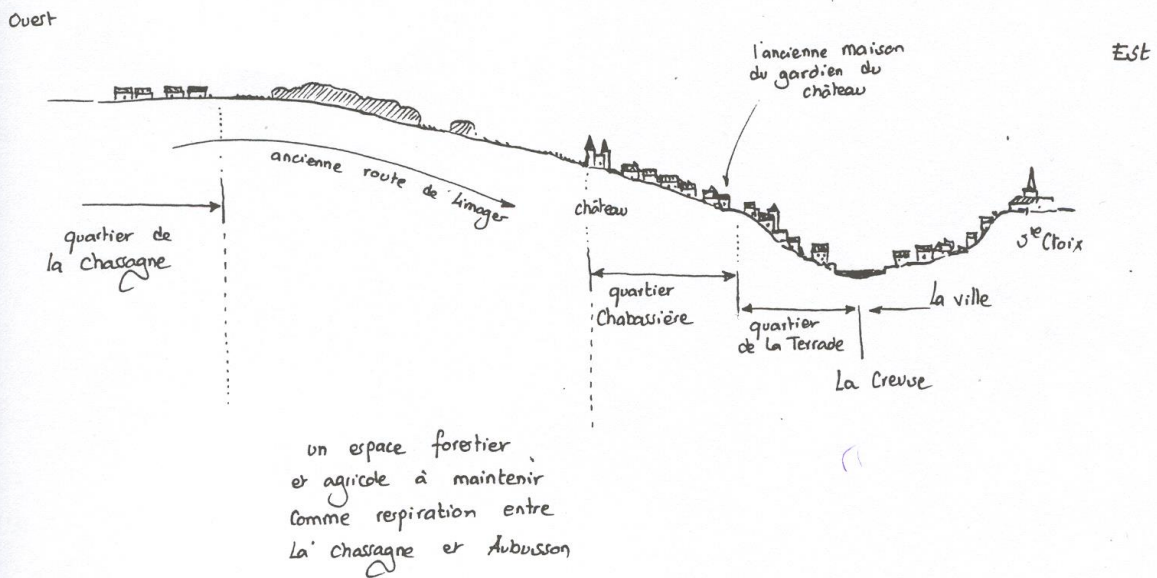 Ouest
Est
l'ancienne maison
du gardien du
château
ancienne route de Limoges
château
Ste Croix
quartier de
la Chassagne
quartier
Chabassière
quartier
de la Terrade
La ville
La Creuse
un espace forestier
et agricole à maintenir
comme respiration entre
La Chassagne et Aubusson